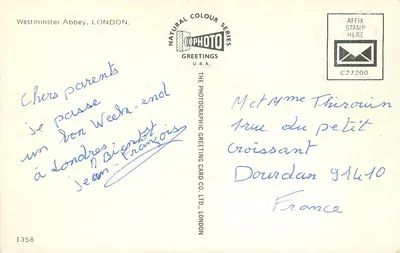 Westminster Abbey, LONDON.
Chers parents
je passe
un bon Week-end
à Londres.
A Bientôt
Jean-François
1358
NATURAL COLOUR SERIES
PHOTO
GREETINGS
U.S.A.
THE PHOTOGRAPHIC GREETING CARD CO. LTD., LONDON
AFFIX
STAMP
HERE
C27200
M et Mme Therouin
1 rue du petit
Croissant
Dourdan 91410
France